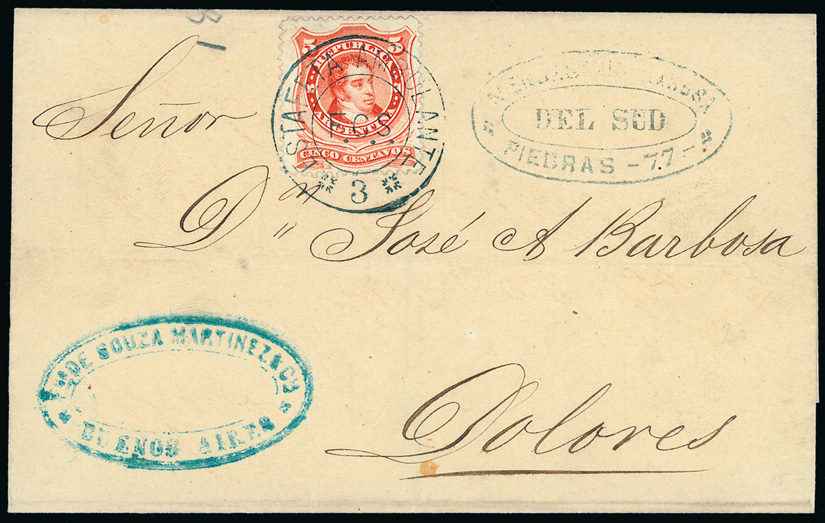 Señor
Dⁿ José A Barbosa
Dolores
5 5
REPUBLICA
ARGENTINA
CINCO CENTAVOS
ESTAFETA AMBULANTE
F.C.S.
3
DEL SUD
PIEDRAS - 77 -
DE SOUZA MARTINEZ & Cª
BUENOS AIRES